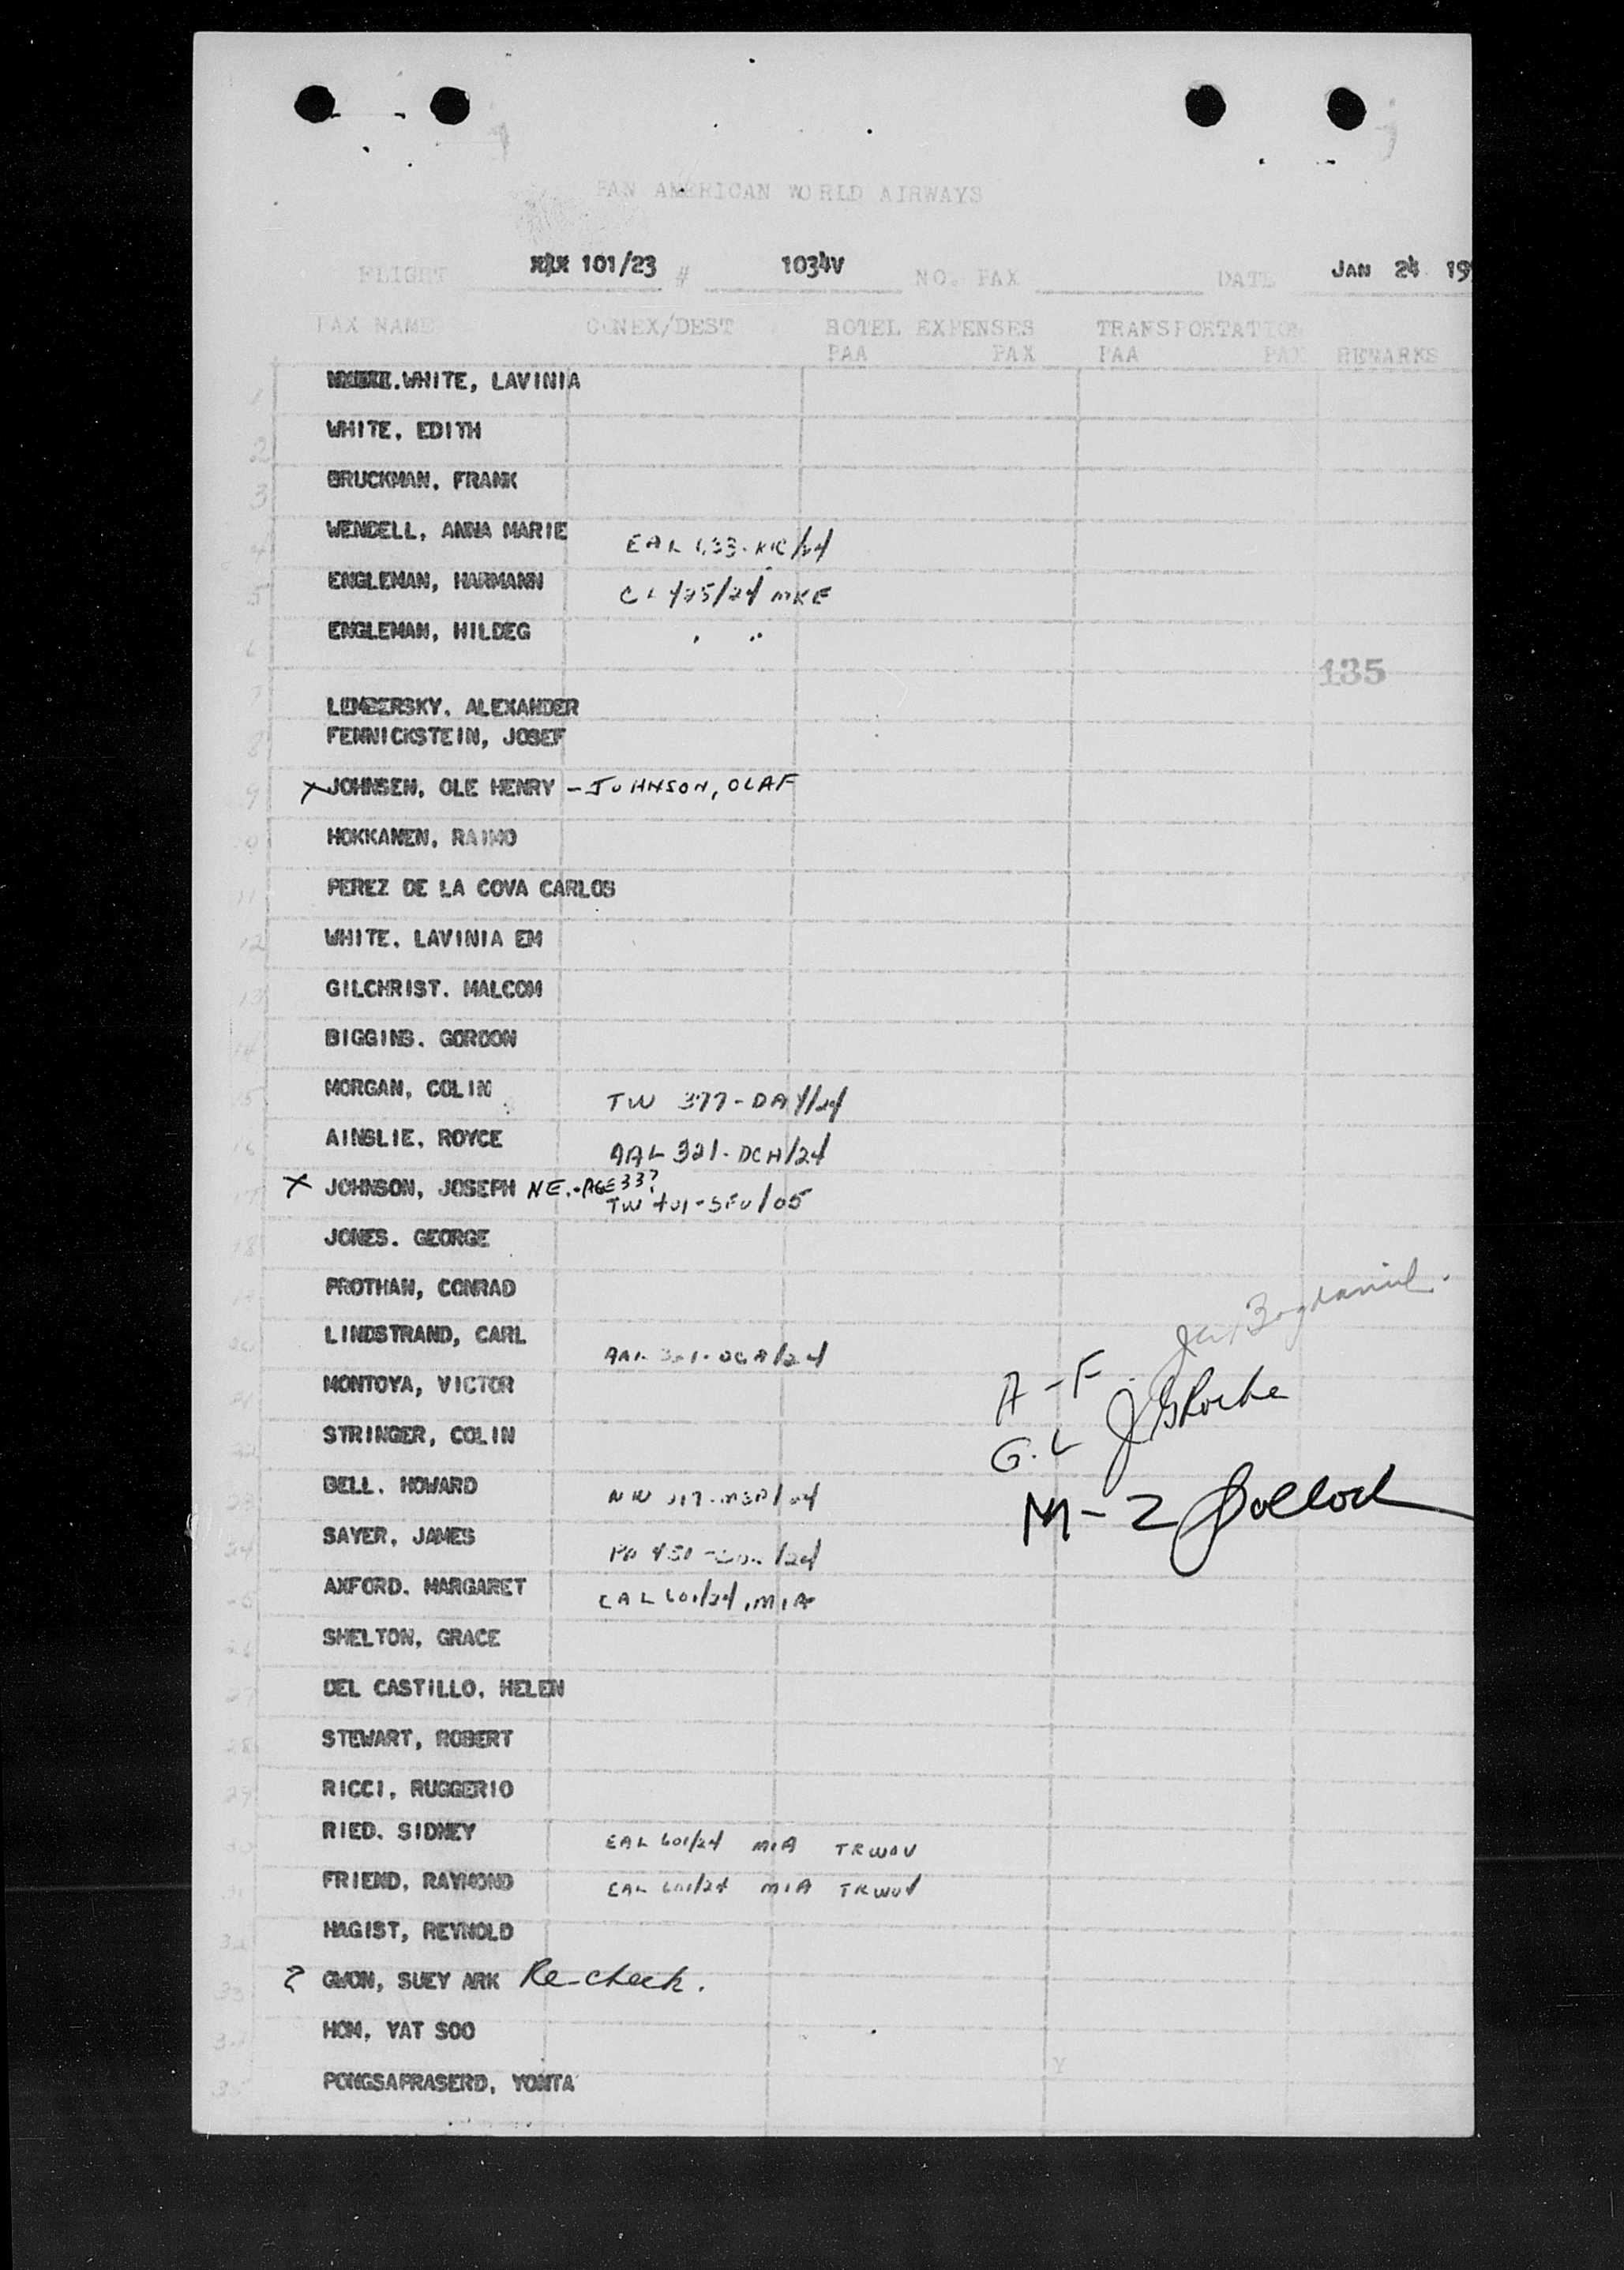 PAN AMERICAN WORLD AIRWAYS
FLIGHT 101/23 # 1034V NO. PAX DATE JAN 24 19
PAX NAME CONEX/DEST HOTEL EXPENSES TRANSPORTATION
PAA PAX PAA PAX REMARKS
1 WHITE, LAVINIA
2 WHITE, EDITH
3 BRUCKMAN, FRANK
4 WENDELL, ANNA MARIE EAL
5 ENGLEMAN, HARMANN MKE
6 ENGLEMAN, HILDEG
135
7 LEMBERSKY, ALEXANDER
8 FENNICKSTEIN, JOSEF
9 X JOHNSEN, OLE HENRY - JOHNSON, OLAF
10 HOKKANEN, RAIMO
11 PEREZ DE LA COVA CARLOS
12 WHITE. LAVINIA EM
13 GILCHRIST. MALCOM
14 BIGGINS. GORDON
15 MORGAN, COLIN TW 377-DAY/24
16 AINSLIE, ROYCE AAL 321-DCA/24
17 X JOHNSON, JOSEPH N.E.-AGE 33?
TW
18 JONES. GEORGE
19 PROTHAN, CONRAD
20 LINDSTRAND, CARL AAL
21 MONTOYA, VICTOR
A-F
22 STRINGER, COLIN
G.L
23 BELL. HOWARD NW
M-Z Pollock
24 SAYER, JAMES
25 AXFORD. MARGARET EAL 601/24, MIA
26 SHELTON, GRACE
27 DEL CASTILLO, HELEN
28 STEWART, ROBERT
29 RICCI, RUGGERIO
30 RIED. SIDNEY EAL 601/24 MIA
31 FRIEND, RAYMOND EAL 601/24 MIA
32 HAGIST, REYNOLD
33 ? GWON, SUEY ARK Re-check.
34 HOM, YAT SOO
35 PONGSAPRASERD, YONTA